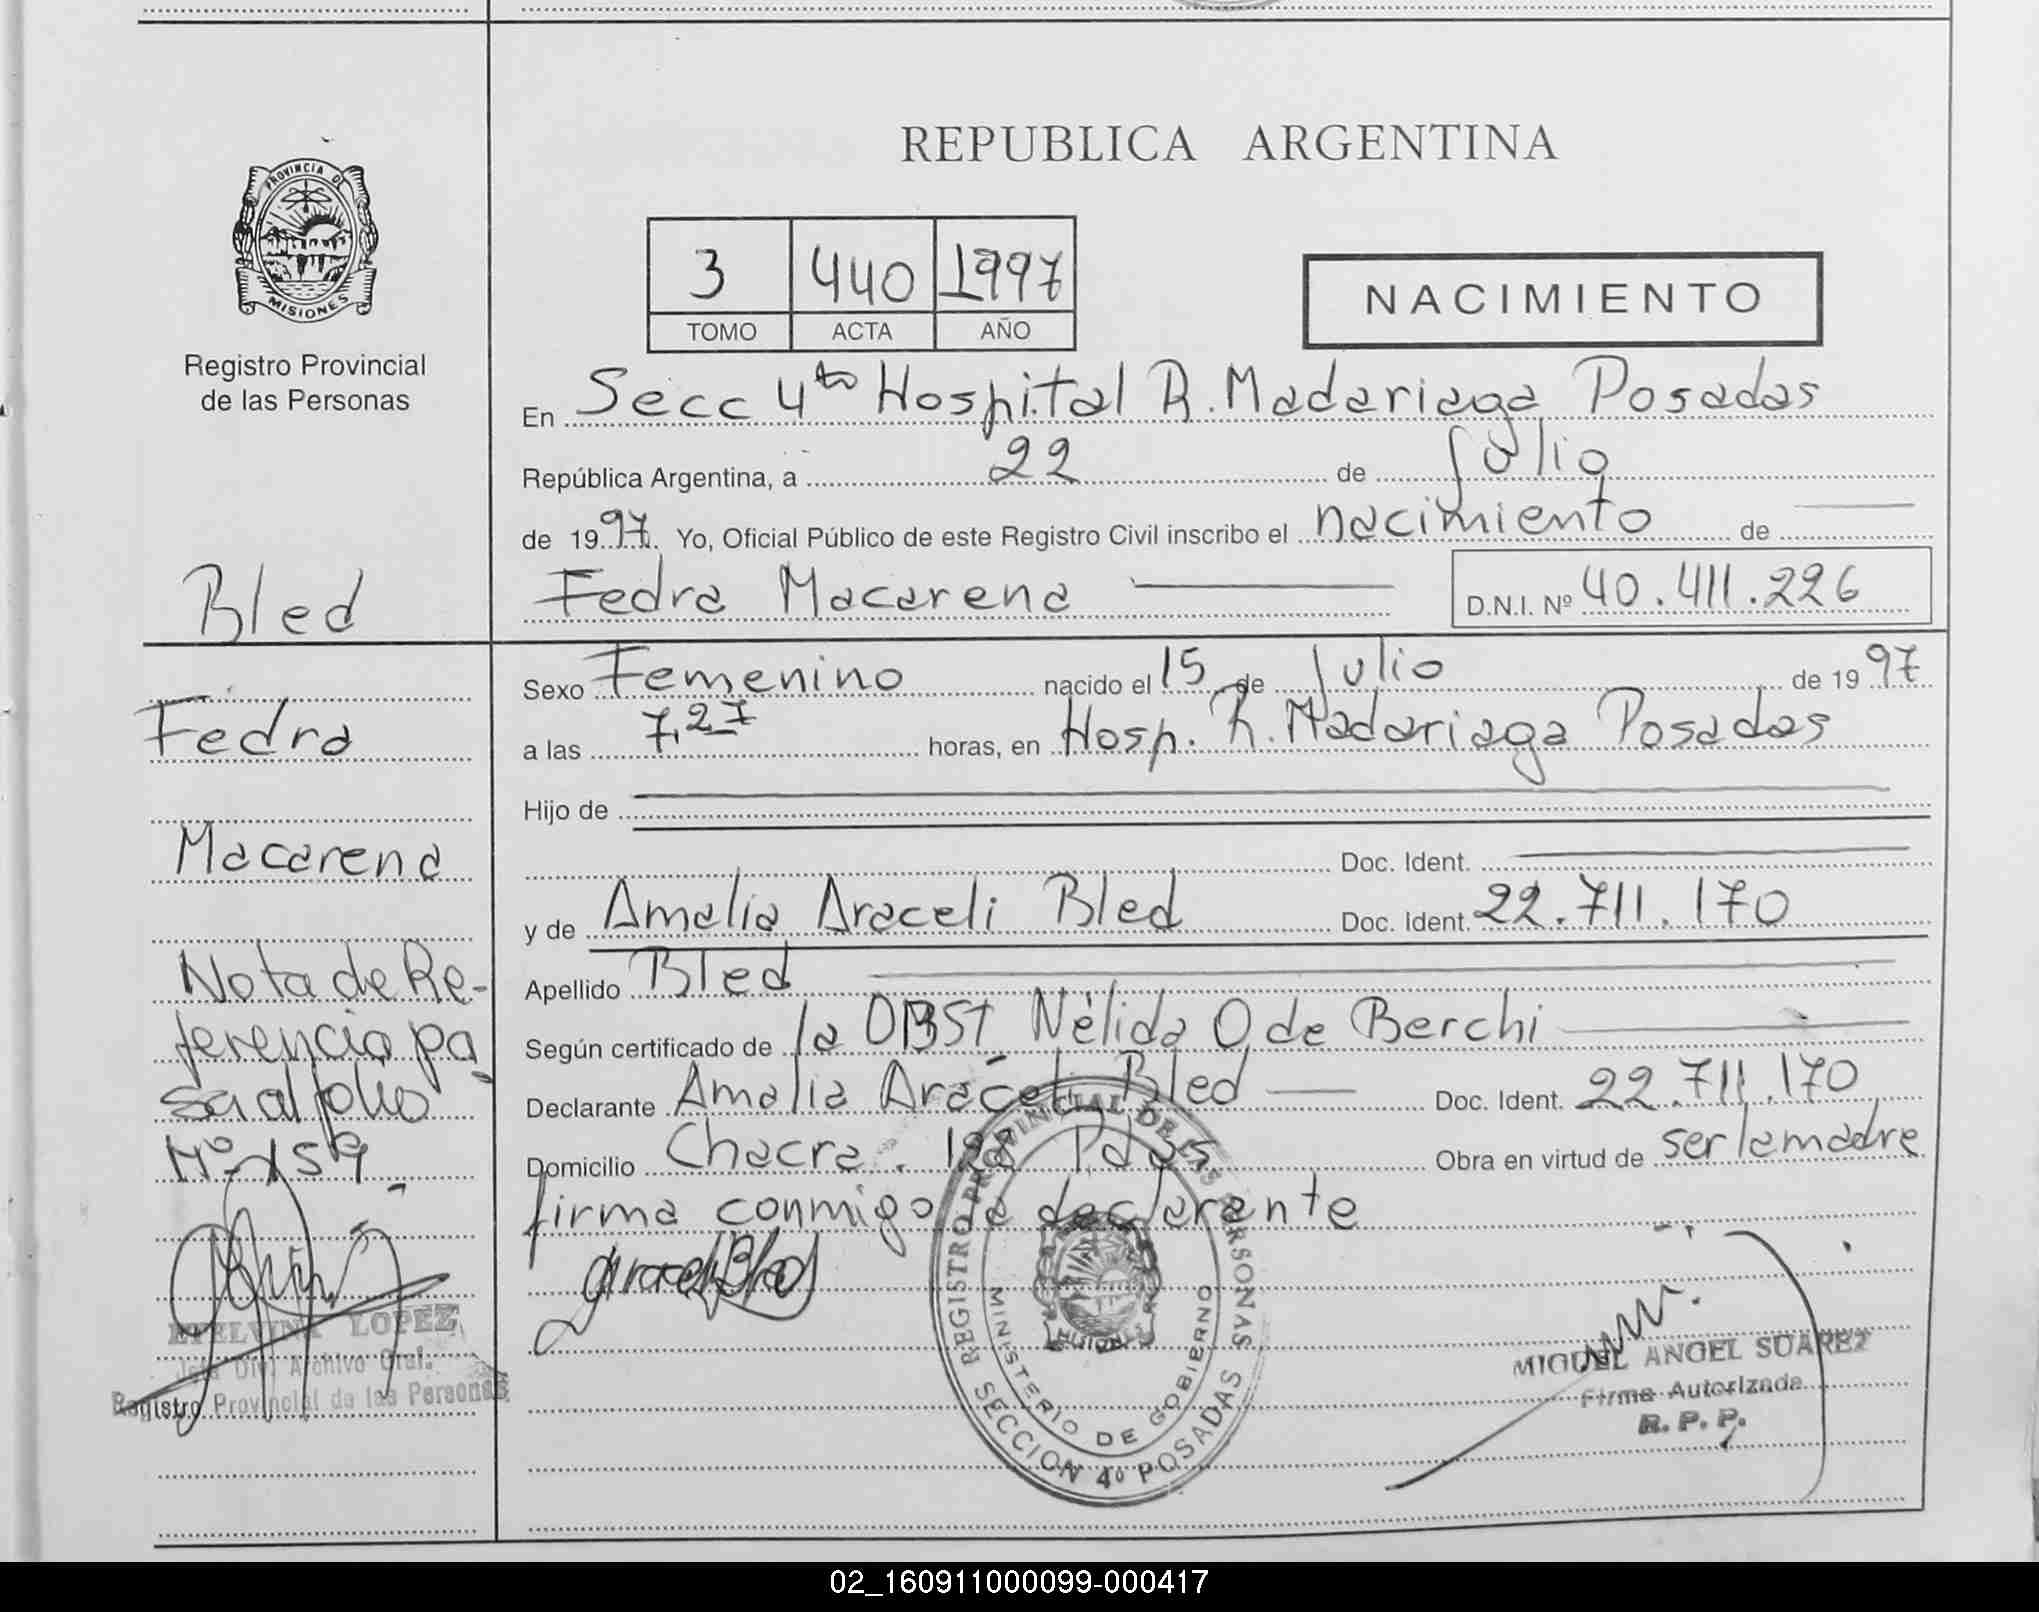 REPUBLICA ARGENTINA
PROVINCIA DE
MISIONES
Registro Provincial
de las Personas
3 440 1997
TOMO ACTA AÑO
NACIMIENTO
En Secc 4ta Hospital R. Madariaga Posadas
República Argentina, a 22 de Julio
de 1997. Yo, Oficial Público de este Registro Civil inscribo el nacimiento de
Fedra Macarena D.N.I. Nº 40.411.226
Sexo Femenino nacido el 15 de Julio de 1997
a las 7,27 horas, en Hosp. R. Madariaga Posadas
Hijo de
Doc. Ident.
y de Amalia Araceli Bled Doc. Ident. 22.711.170
Apellido Bled
Según certificado de la OBST Nélida O de Berchi
Declarante Amalia Araceli Bled Doc. Ident. 22.711.170
Domicilio Chacra. 198 Pdas Obra en virtud de ser la madre
firma conmigo la declarante
Araceli Bled
Bled
Fedra
Macarena
Nota de Re-
ferencia pa
sa al folio
Nº 159
ETELVINA LOPEZ
Jefa Div. Archivo Gral.
Registro Provincial de las Personas
REGISTRO PROVINCIAL DE LAS PERSONAS
MINISTERIO DE GOBIERNO
MISIONES
SECCION 4º POSADAS
MIGUEL ANGEL SUAREZ
Firma Autorizada
R. P. P.
02_160911000099-000417